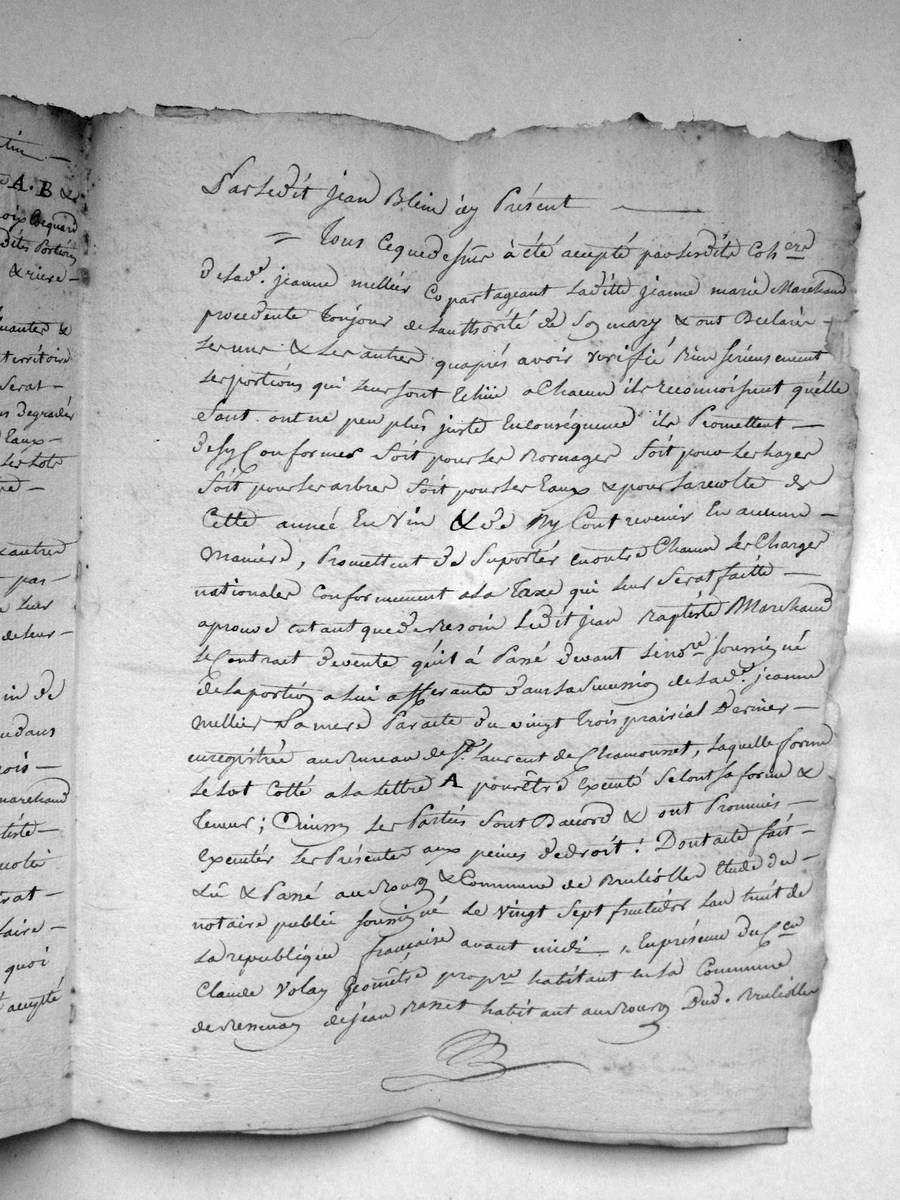 tin —
A. B &
oix Coquard
dits Portion
& riere —
uantes &
territoire
Serat —
us Degrader
Eaux —
Les Lots
& autres
par —
e leur
de leur —
in de
u dans
ois —
marchand
tiste —
trat —
faire —
quoi
accepté
Par Ledit jean Blein icy Présent
= Tous Ceque dessus à été accepté par Lesdits Cohers
de Lad.e jeanne mellier Copartageant Laditte jeanne marie Marchand
procedente toujour de Lauthorité de Son mary & ont Declarés —
Les uns & Les autres quaprés avoir verifié bien sérieusement
Les portions qui leur sont Echue a Chacun ils reconnoissent quelle
Sont ont ne peu plus juste En conséquence ils Promettent —
de Sy Conformer Soit pour Les Bornages Soit pour Les hayes
Soit pour Les arbres Soit pour Les Eaux & pour La recolte de
Cette année En Vin & de Ny Contrevenir En aucune —
Maniere, Promettent de Suporter en outre Chacun Les Charges
nationales Conformement a La Taxe qui leur Serat faitte —
aprouve en tant que de Besoin Ledit jean Baptiste Marchand
Le Contrat de vente quil à Passé devant Le no.re soussigné
de La portion a Lui afferante dans La Sucession de Lad.e jeanne
Mellier Sa mere Par acte du vingt trois prairial Dernier —
enregistrée au Bureau de S.t Laurent de Chamousset, Laquelle forme
Le Lot Cotté a La Lettre A pour être Executé Selont Sa forme &
teneur; Ainssy Les Parties Sont D'accord & ont Prommis —
Executér Les Présentes aux peines de droit: Dont acte fait —
Lû & Passé au Bourg & Commune de Brulliolles Etude du —
notaire public soussigné Le Vingt Sept fructidor Lan huit de
La republique francaise avant midi — En présence du C.en
Claude Volay Geomêtre propre habitant En La Commune
de Bessenay de jean Basset habitant au Bourg Dud. Brulliolles